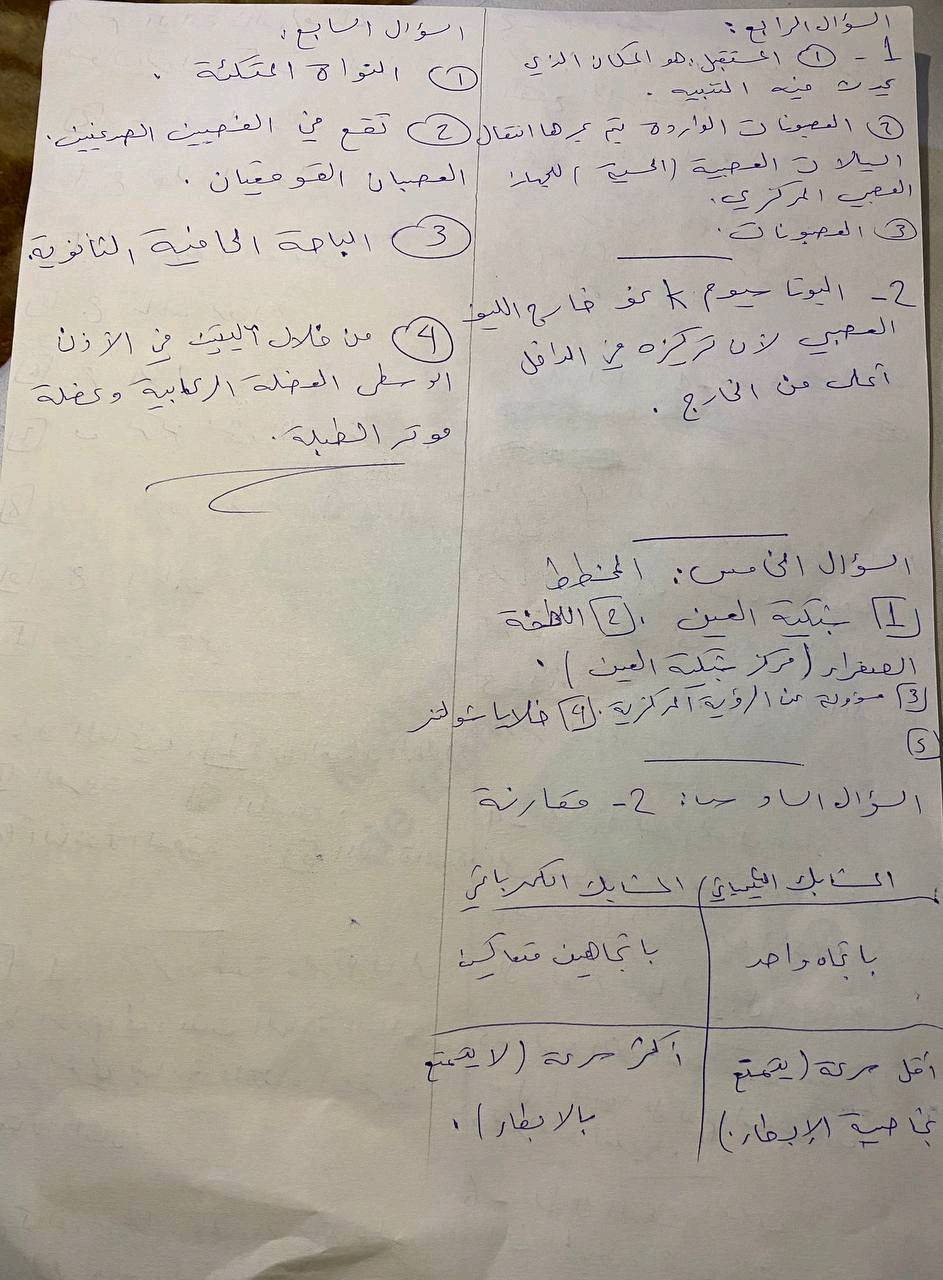 السؤال الرابع:
1 - ① المستقبل، هو المكان الذي
يحدث فيه التنبيه.
② العصبونات الواردة يتم عبرها انتقال
السيالات العصبية (الحسية) للجهاز
العصبي المركزي.
③ العصبونات.
2- البوتاسيوم K نحو خارج الليف
العصبي لأن تركيزه في الداخل
أعلى من الخارج.
السؤال الخامس: المخطط
1 شبكية العين. 2 اللطخة
الصفراء (مركز شبكية العين).
3 مسؤولة عن الرؤية المركزية. 4 خلايا شولتز
5
السؤال السادس: 2- مقارنة
المشابك الكيميائي / المشابك الكهربائي
باتجاه واحد
باتجاهين متعاكسين
أقل سرعة (يتمتع
بخاصية الإبطاء.)
أكثر سرعة (لا يتمتع
بالابطاء).
السؤال السابع:
① النواة المتكئة.
② تقع في الفصين الصدغيين.
العصبان القوقعيان.
③ الباحة الحافية الثانوية.
④ من خلال آليتين في الأذن
الوسطى العضلة الركابية وعضلة
موتر الطبلة.